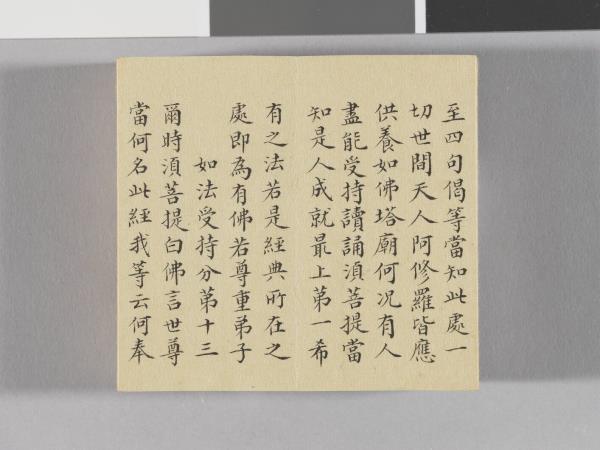 至四句偈等當知此處一
切世間天人阿修羅皆應
供養如佛塔廟何况有人
盡能受持讀誦湏菩提當
知是人成就最上第一希
有之法若是經典所在之
處即為有佛若尊重弟子
如法受持分第十三
爾時湏菩提白佛言世尊
當何名此經我等云何奉